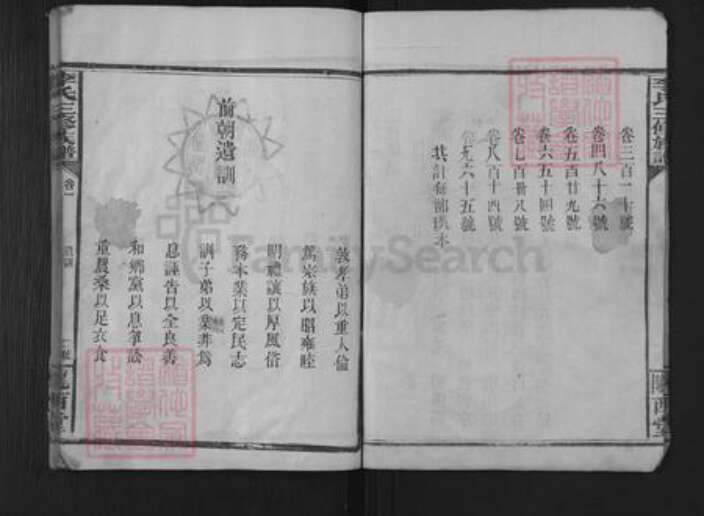 卷三百一十號
卷四八十六號
卷五百廿九號
卷六五十四號
卷七百卅八號
卷八百十四號
卷九六十五號
共計每部
隴西堂
前朝遺訓
敦孝弟以重人倫
篤宗族以昭雍睦
明禮讓以厚風俗
務本業以定民志
訓子弟以禁非為
息誣告以全良善
和鄉黨以息爭訟
重農桑以足衣食
李氏三修族譜
卷一
FamilySearch